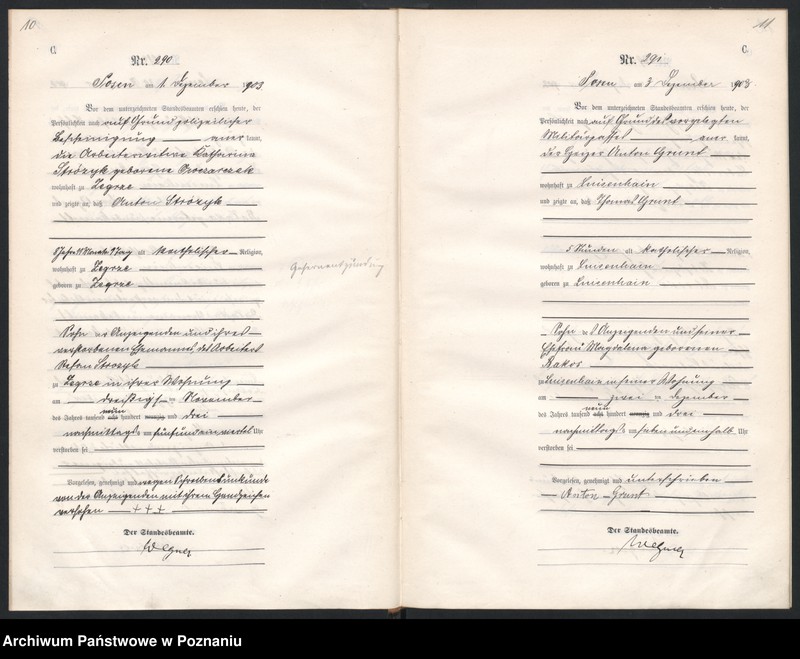 10
C.
Nr. 290
Posen am 1. Dezember 1903
Vor dem unterzeichneten Standesbeamten erschien heute, der
Persönlichkeit nach auf Grund polizeilicher
Bescheinigung — aner kannt,
die Arbeiterwitwe Katharina
Strózyk geborene Owczarczak
wohnhaft zu Zegrze
und zeigte an, daß Anton Strózyk
8 Jahre 11 Monate 1 Tag alt katholischer Religion,
wohnhaft zu Zegrze
geboren zu Zegrze
Sohn der Anzeigenden und ihres
verstorbenen Ehemannes, des Arbeiters
Stefan Strozyk
zu Zegrze in ihrer Wohnung
am dreißigsten November
des Jahres tausend acht neun hundert neunzig und drei
nachmittags um fünf und ein viertel Uhr
verstorben sei
Vorgelesen, genehmigt und wegen Schreibensunkunde
von der Anzeigenden mit ihrem Handzeichen
versehen — + + +
Der Standesbeamte.
Wegner
Gehirnentzündung
11
C.
Nr. 291
Posen am 3. Dezember 1903
Vor dem unterzeichneten Standesbeamten erschien heute, der
Persönlichkeit nach auf Grund des vorgelegten
Militärpasses — aner kannt,
der Heizer Anton Grunt
wohnhaft zu Luisenhain
und zeigte an, daß Thomas Grunt
5 Stunden alt katholischer Religion,
wohnhaft zu Luisenhain
geboren zu Luisenhain
Sohn des Anzeigenden und seiner
Ehefrau Magdalena geborenen
Rakos
zu Luisenhain in seiner Wohnung
am zwei ten Dezember
des Jahres tausend acht neun hundert neunzig und drei
nachmittags um sieben und ein halb Uhr
verstorben sei
Vorgelesen, genehmigt und unterschrieben
Anton Grunt
Der Standesbeamte.
Wegner
Archiwum Państwowe w Poznaniu